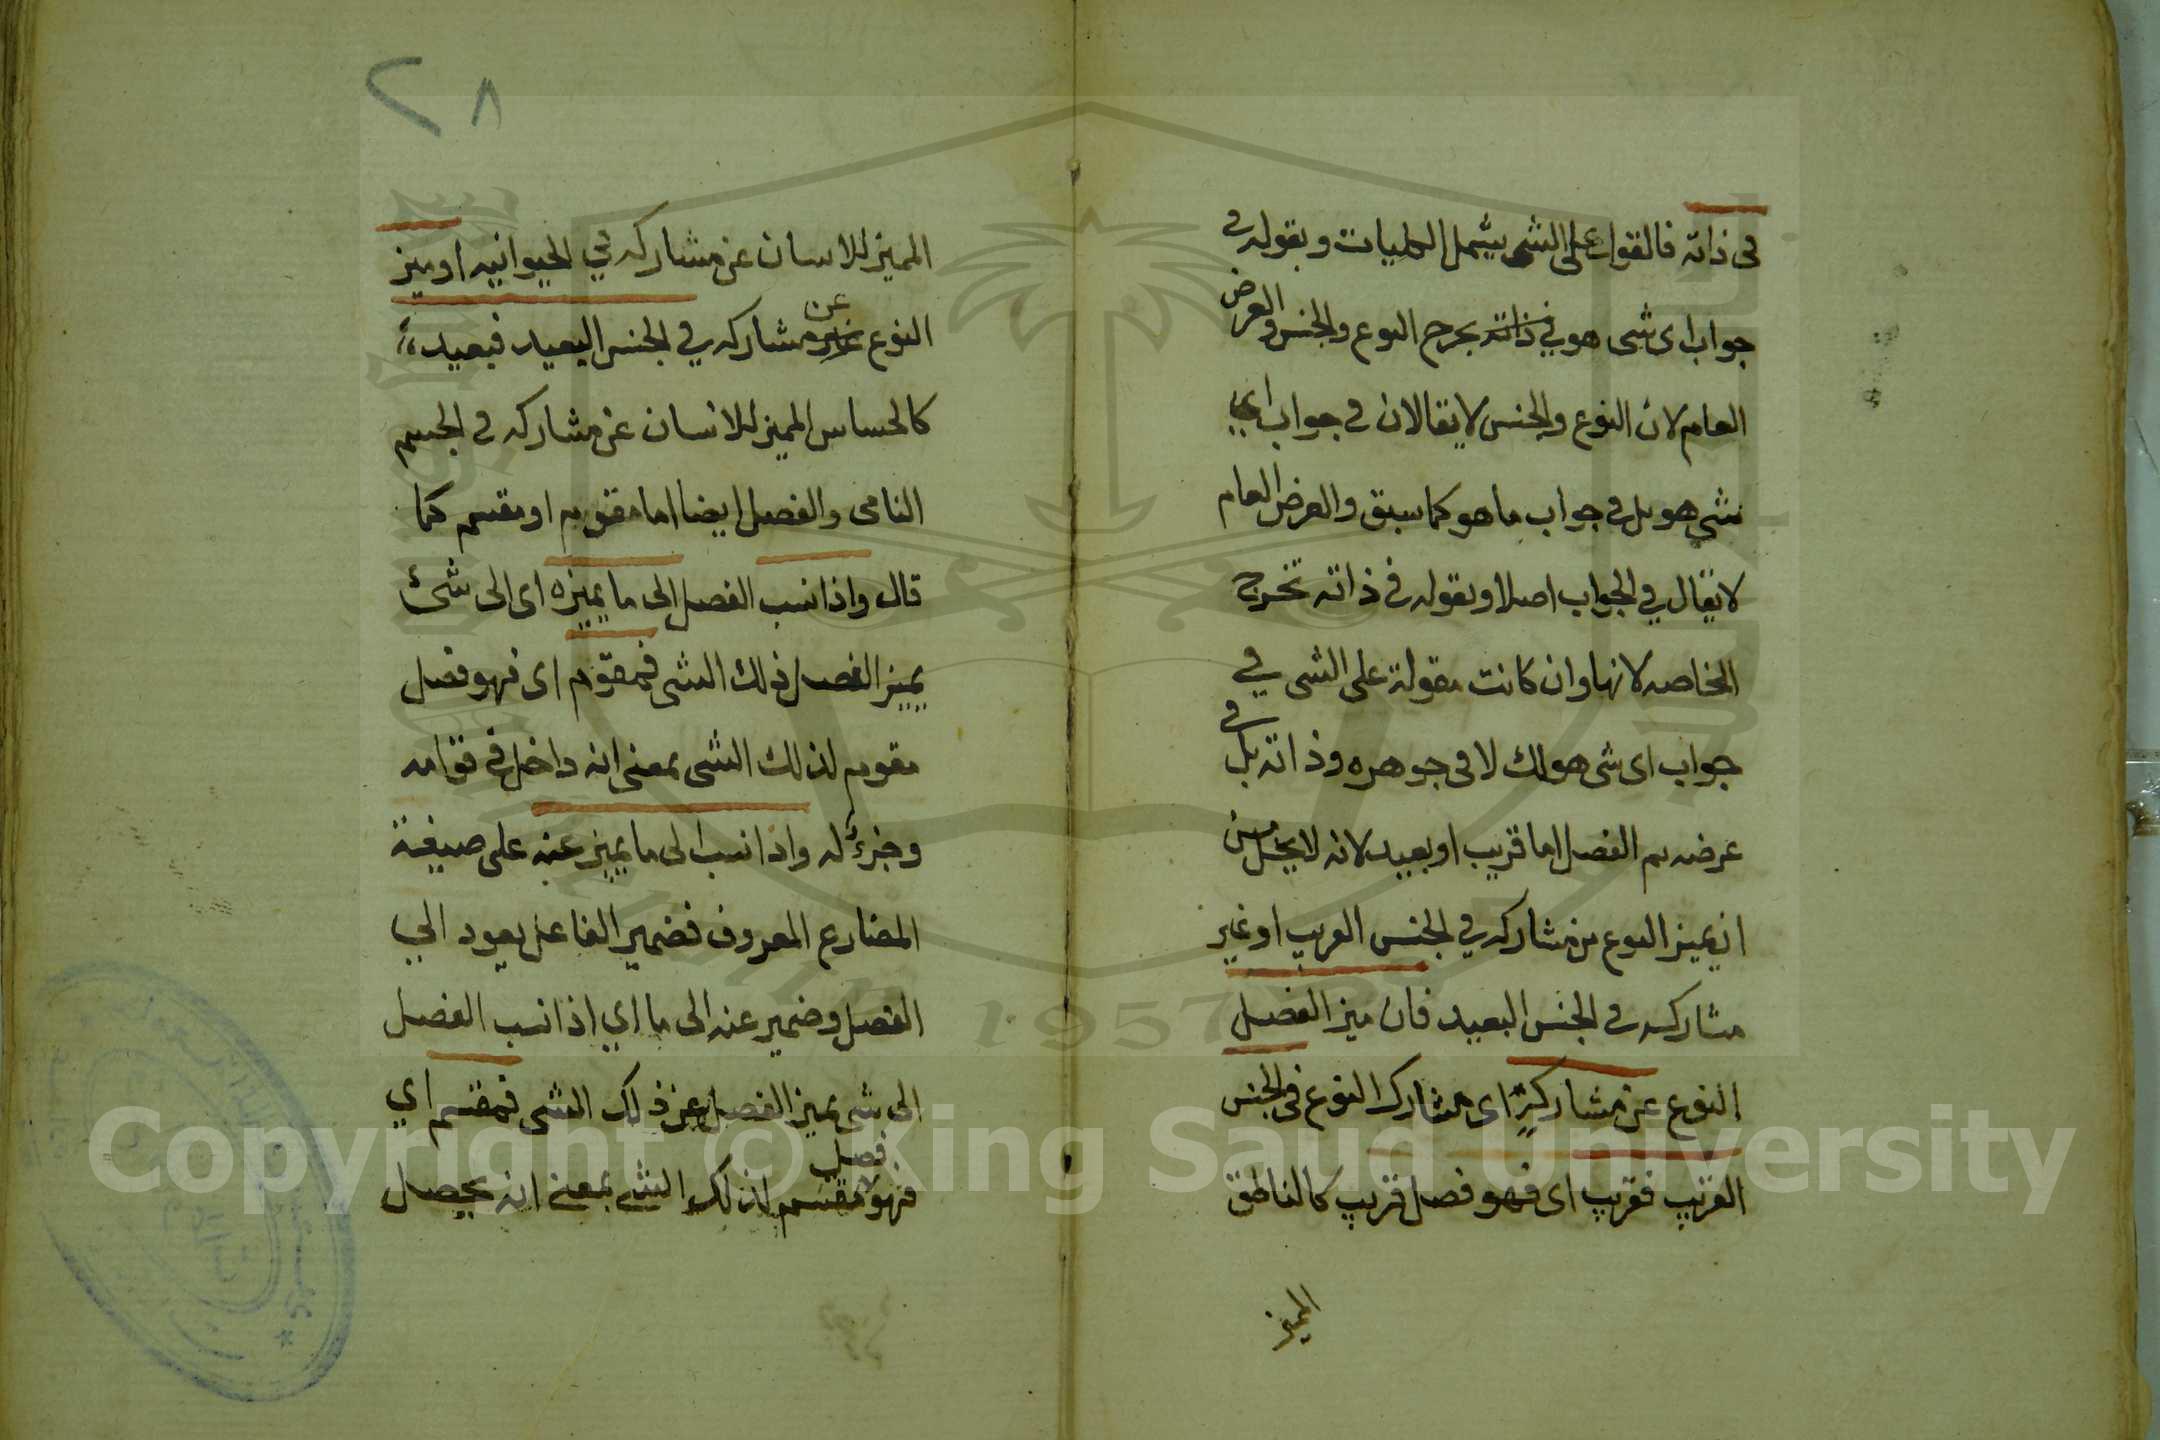 في ذاته فالمقول على الشي يشمل الكليات وبقوله في
جواب اى شى هو في ذاته يخرج النوع والجنس والعرض
العام لان النوع والجنس لا يقالان في جواب اي
شي هو بل في جواب ما هو كما سبق والعرض العام
لا يقال في الجواب اصلا وبقوله في ذاته تخرج
الخاصه لانها وان كانت مقولة على الشى في
جواب اى شى هو لكن لا فى جوهره وذاته بل في
عرضه ثم الفصل اما قريب او بعيد لانه لا يخل من
ان يميز النوع عن مشاركه في الجنس القريب او غير
مشاركه في الجنس البعيد فان ميز الفصل
النوع عن مشاركه اى مشارك النوع فى الجنس
القريب فقريب اى فهو فصل قريب كالناطق
المميز
٢٨
المميز للانسان عن مشاركه في الحيوانيه او ميز
النوع عن مشاركه في الجنس البعيد فبعيد
كالحساس المميز للانسان عن مشاركه في الجسم
النامى والفصل ايضا اما مقوم او مقسم كما
قال واذا نسب الفصل الى ما يميزه اى الى شئ
يميز الفصل ذلك الشى فمقوم اى فهو فصل
مقوم لذلك الشى بمعنى انه داخل في قوامه
وجزء له واذا نسب الى ما يميز عنه على صيغة
المضارع المعروف فضمير الفاعل يعود الي
الفصل وضمير عنه الى ما اي اذا نسب الفصل
الى شى يميز الفصل عن ذلك الشى فمقسم اي
فهو فصل مقسم لذلك الشي بمعنى انه يحصل
1957
Copyright © King Saud University